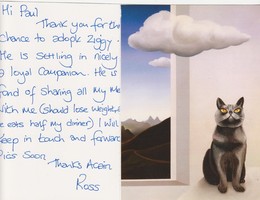 Hi Paul
Thank you for the
chance to adopt Ziggy.
He is settling in nicely
a loyal companion. He is
fond of sharing all my Me
with me (should lose weight, 
he eats half my dinner) I will
keep in touch and forward
pics soon.
Thanks Again
Ross